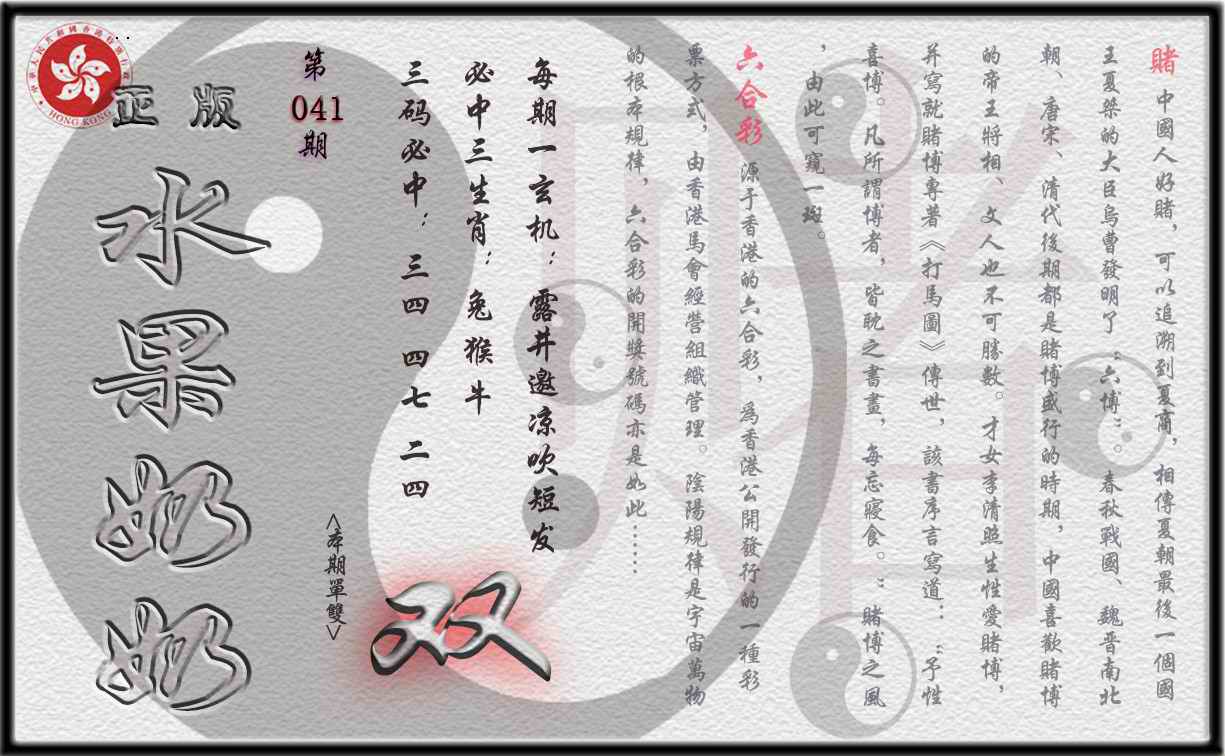 賭 中國人好賭，可以追溯到夏商，相傳夏朝最後一個國
王夏桀的大臣烏曹發明了“六博”。春秋戰國、魏晋南北
朝、唐宋、清代後期都是賭博盛行的時期，中國喜歡賭博
的帝王將相、文人也不可勝數。才女李清照生性愛賭博，
并寫就賭博專著《打馬圖》傳世，該書序言寫道：“予性
喜博。凡所謂博者，皆耽之書畫，每忘寢食。”賭博之風
，由此可窺一斑。
六合彩 源于香港的六合彩，爲香港公開發行的一種彩
票方式，由香港馬會經營組織管理。陰陽規律是宇宙萬物
的根本規律，六合彩的開獎號碼亦是如此……
每期一玄机：露井邀凉吹短发
必中三生肖：兔猴牛
三码必中：三四 四七 二四
第
041
期
<本期單雙>
双
正版
水果奶奶
中華人民共和國香港特別行政區
HONG KONG